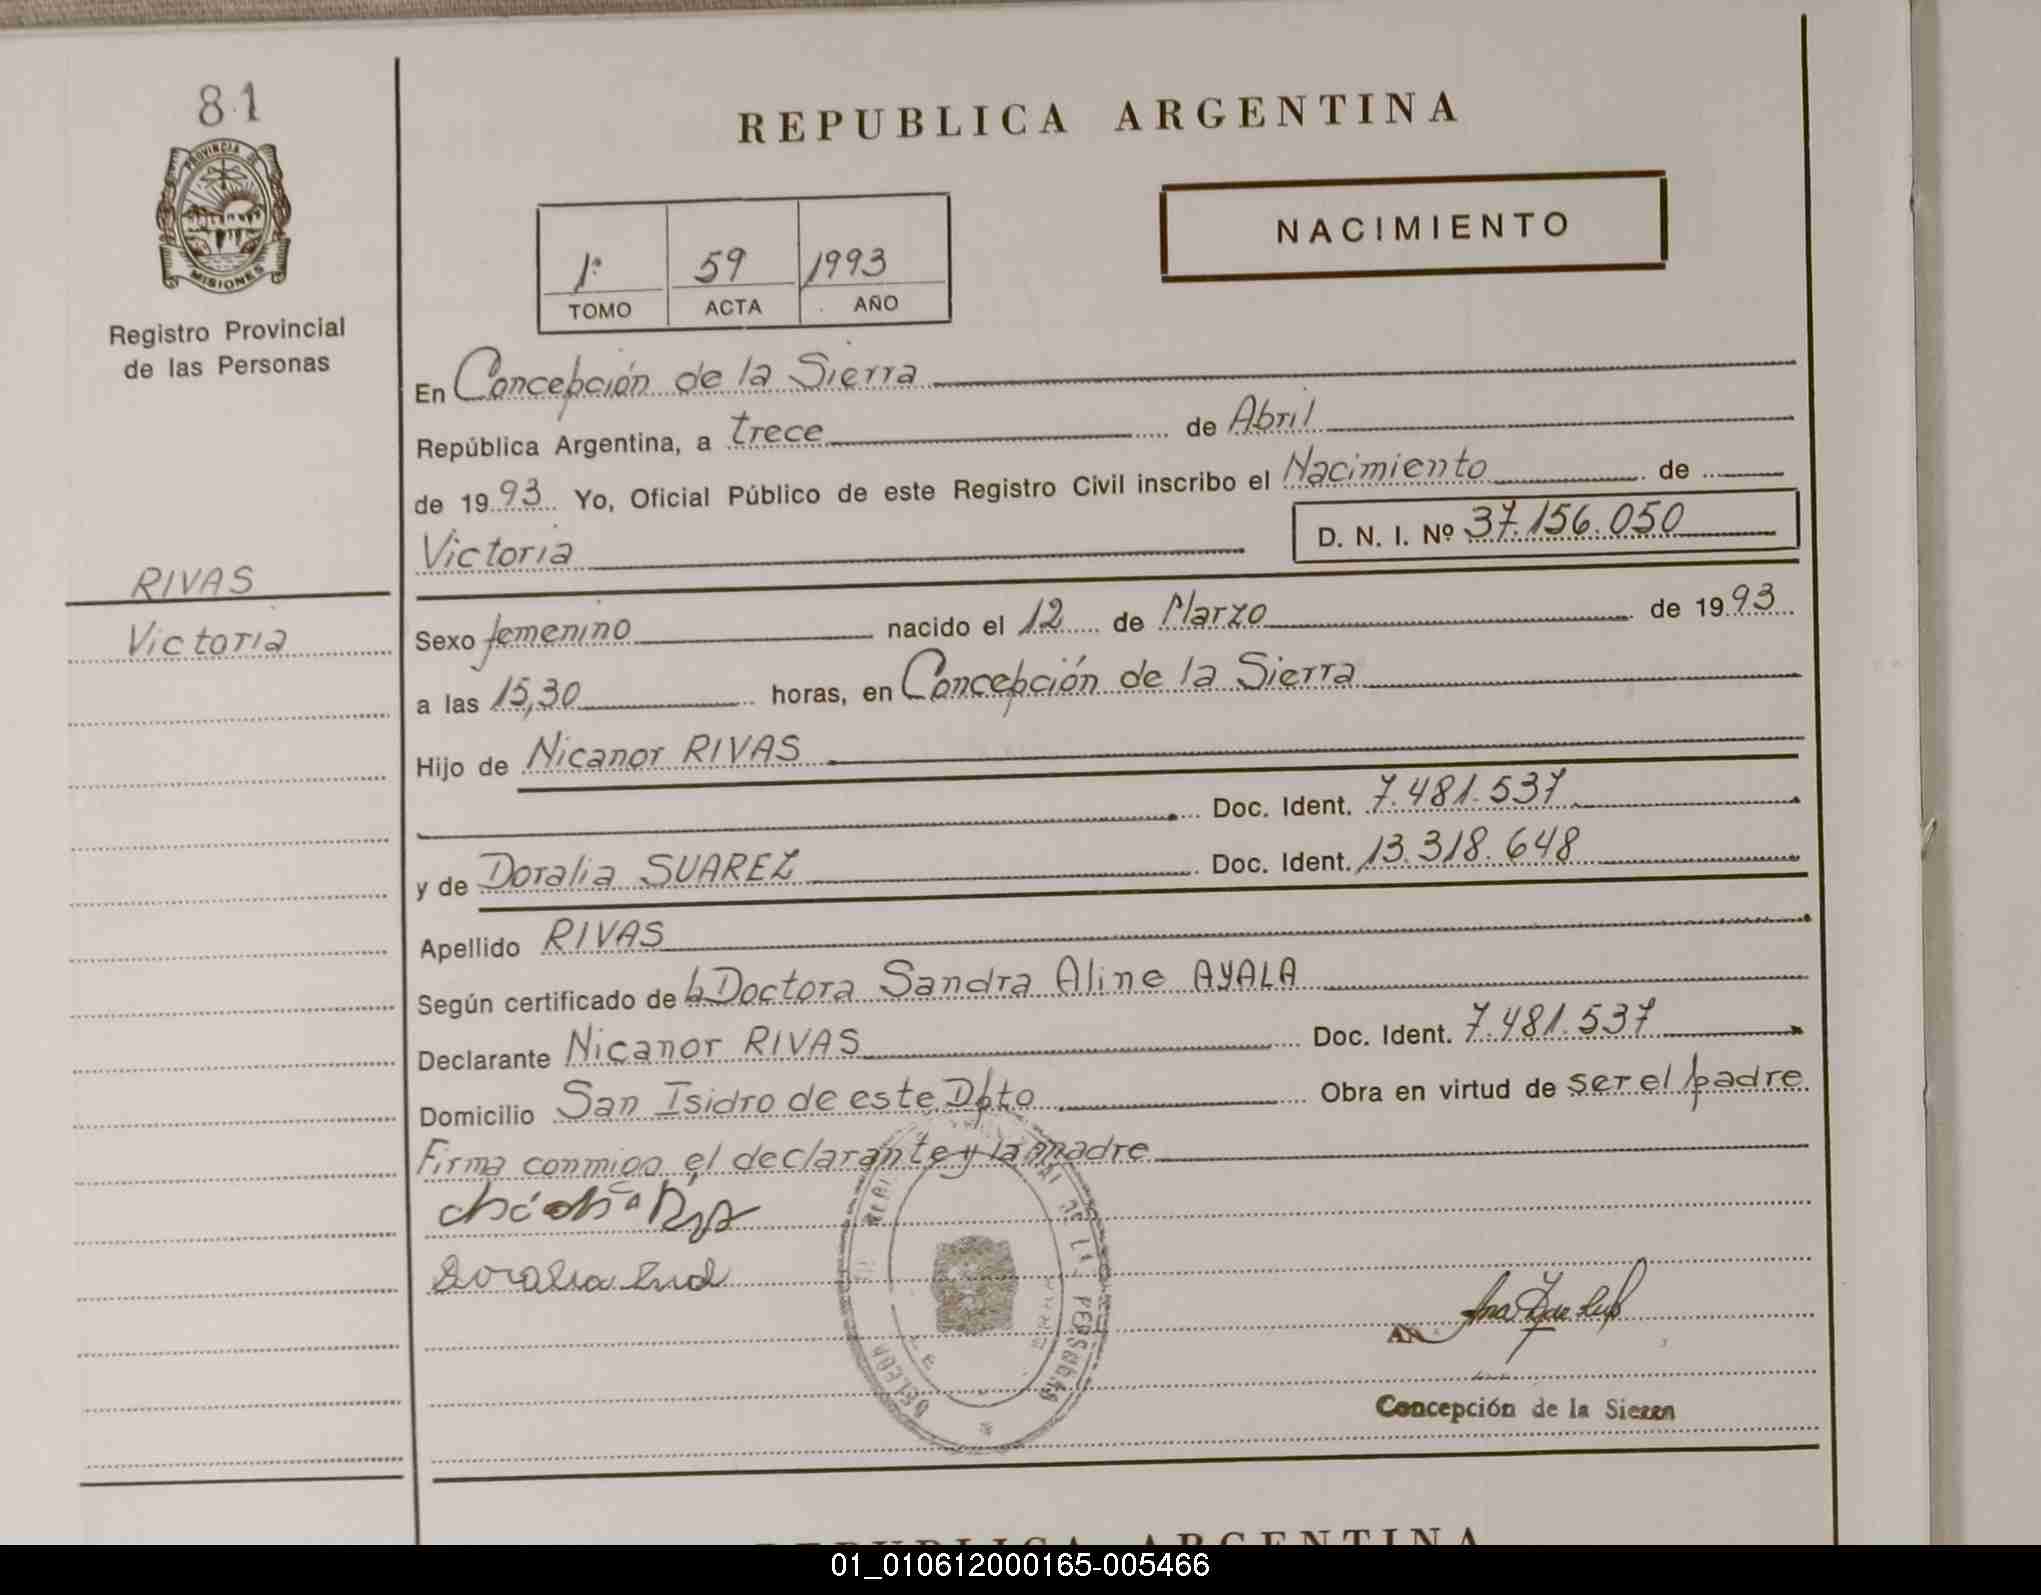 81
PROVINCIA DE
MISIONES
Registro Provincial
de las Personas
RIVAS
Victoria
REPUBLICA ARGENTINA
1º 59 1993
TOMO ACTA AÑO
NACIMIENTO
En Concepción de la Sierra
República Argentina, a trece de Abril
de 1993 Yo, Oficial Público de este Registro Civil inscribo el Nacimiento de
Victoria D. N. I. Nº 37.156.050
Sexo femenino nacido el 12 de Marzo de 1993
a las 15,30 horas, en Concepción de la Sierra
Hijo de Nicanor RIVAS
Doc. Ident. 7.481.537
y de Doralia SUAREZ Doc. Ident. 13.318.648
Apellido RIVAS
Según certificado de la Doctora Sandra Aline AYALA
Declarante Nicanor RIVAS Doc. Ident. 7.481.537
Domicilio San Isidro de este Dpto Obra en virtud de ser el padre
Firma conmigo el declarante y la madre
Concepción de la Sierra
REPUBLICA ARGENTINA
01_010612000165-005466